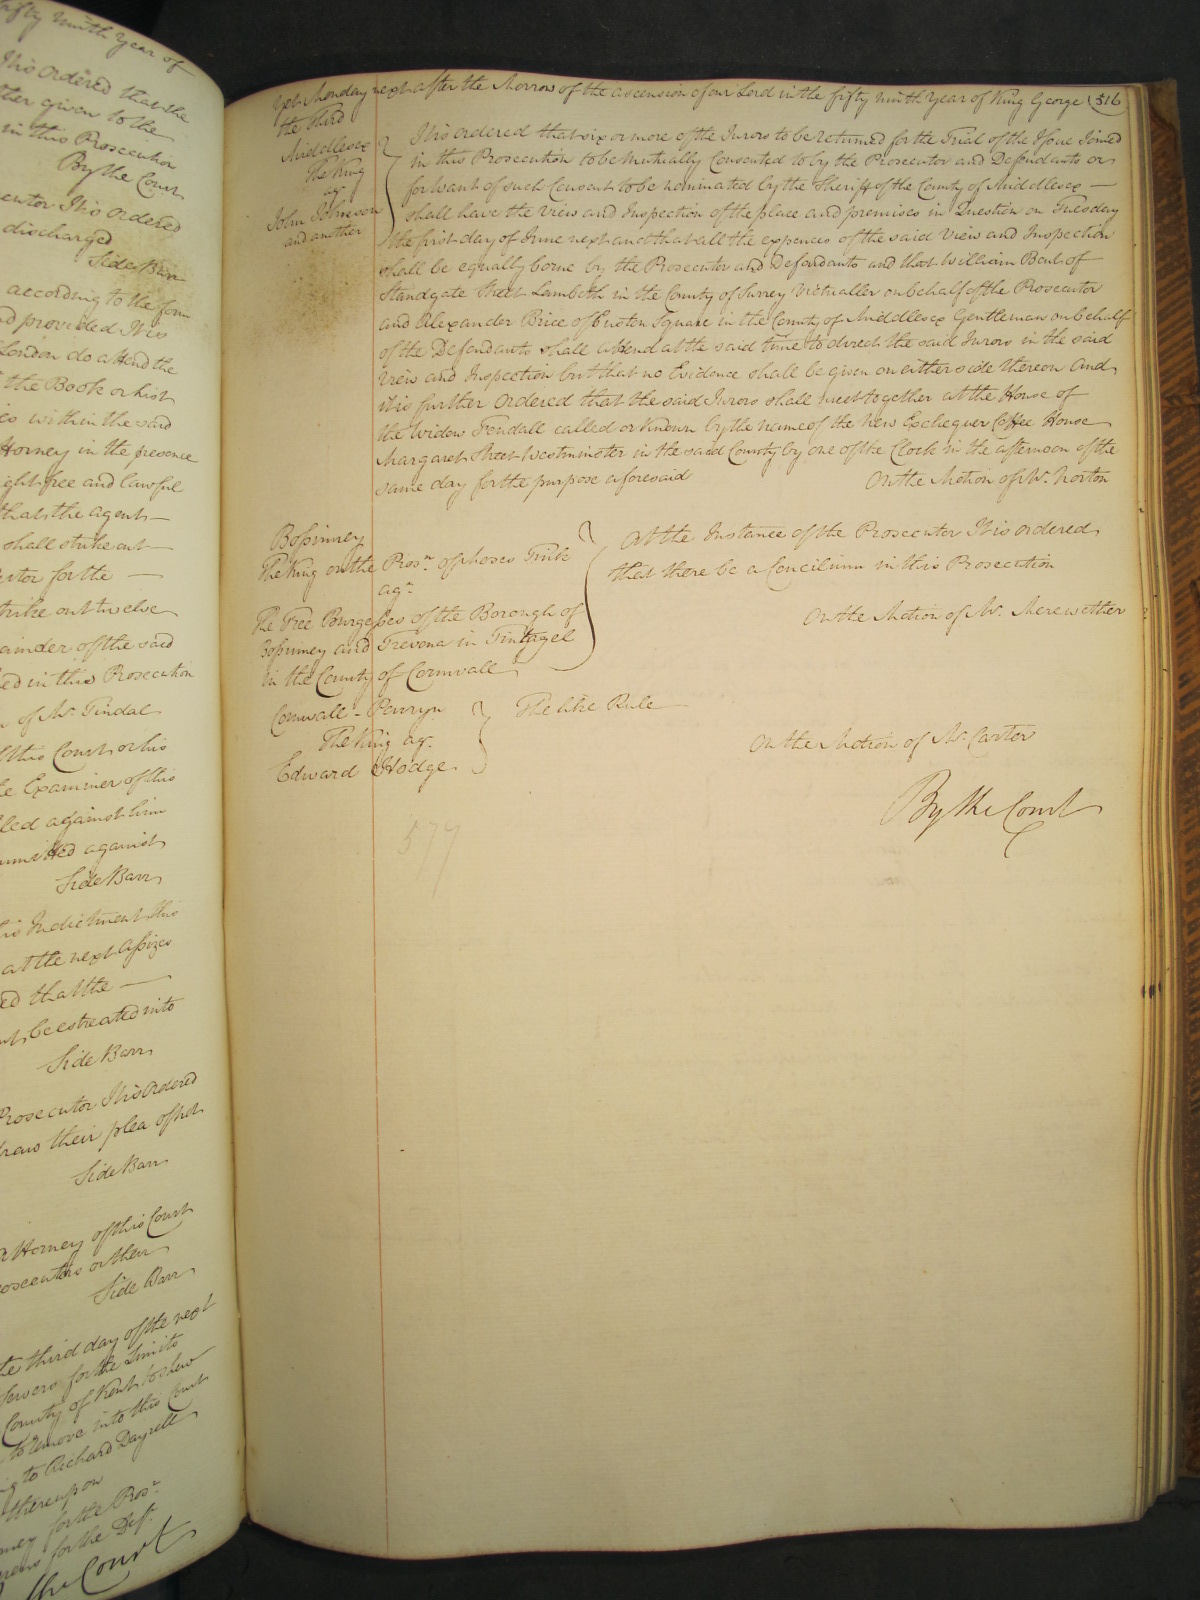 fifty ninth Year of
It is ordered that the
given to the
in this Prosecution
By the Court
It is ordered
discharged
Side Barr
according to the form
provided It is
London do attend the
the Book or List
within the said
Attorney in the presence
free and lawful
that the agent —
shall strike out —
for the —
strike out twelve
remainder of the said
in this Prosecution
of Mr. Tindal
this Court or his
Examiner of this
filed against him
committed against
Side Barr
his Indictment this
at the next Assizes
that the —
be estreated into
Side Barr
Prosecutor It is ordered
their plea of not
Side Barr
Attorney of this Court
Prosecutors or their
Side Barr
the third day of the next
Sewers for the Limits
County of Kent to shew
to remove into this Court
to Richard Dayrell
thereupon
for the Pros.r
for the Def.t
the Court
yet Monday next after the Morrow of the ascension of our Lord in the fifty ninth Year of King George 516
the third
Middlesex
The King
ag.t
John Johnson
and another
It is ordered that six or more of the Jurors to be returned for the Trial of the Issue Joined
in this Prosecution to be Mutually Consented to by the Prosecutor and Defendants or
for want of such Consent to be nominated by the Sheriff of the County of Middlesex —
shall have the View and Inspection of the place and premises in Question on Tuesday
the first day of June next and that all the expences of the said View and Inspection
shall be equally borne by the Prosecutor and Defendants and that William Bent of
Standgate Street Lambeth in the County of Surrey Victualler on behalf of the Prosecutor
and Alexander Brice of Euston Square in the County of Middlesex Gentleman on behalf
of the Defendants shall attend at the said time to direct the said Jurors in the said
View and Inspection but that no Evidence shall be given on either side thereon And
it is further Ordered that the said Jurors shall meet together at the House of
the Widow Fendall called or known by the name of the New Exchequer Coffee House
Margaret Street Westminster in the said County by one of the Clock in the afternoon of the
same day for the purpose aforesaid On the Motion of Mr. Norton
Bossinney
The King on the Pros.n of Moses Trick
ag.t
The Free Burgesses of the Borough of
Bossinney and Trevena in Tintagel
in the County of Cornwall
At the Instance of the Prosecutor It is ordered
that there be a Concilium in this Prosecution
On the Motion of Mr. Merewether
Cornwall - Penryn
The King ag.t
Edward Hodge
The like Rule
On the Motion of Mr. Carter
By the Court
577